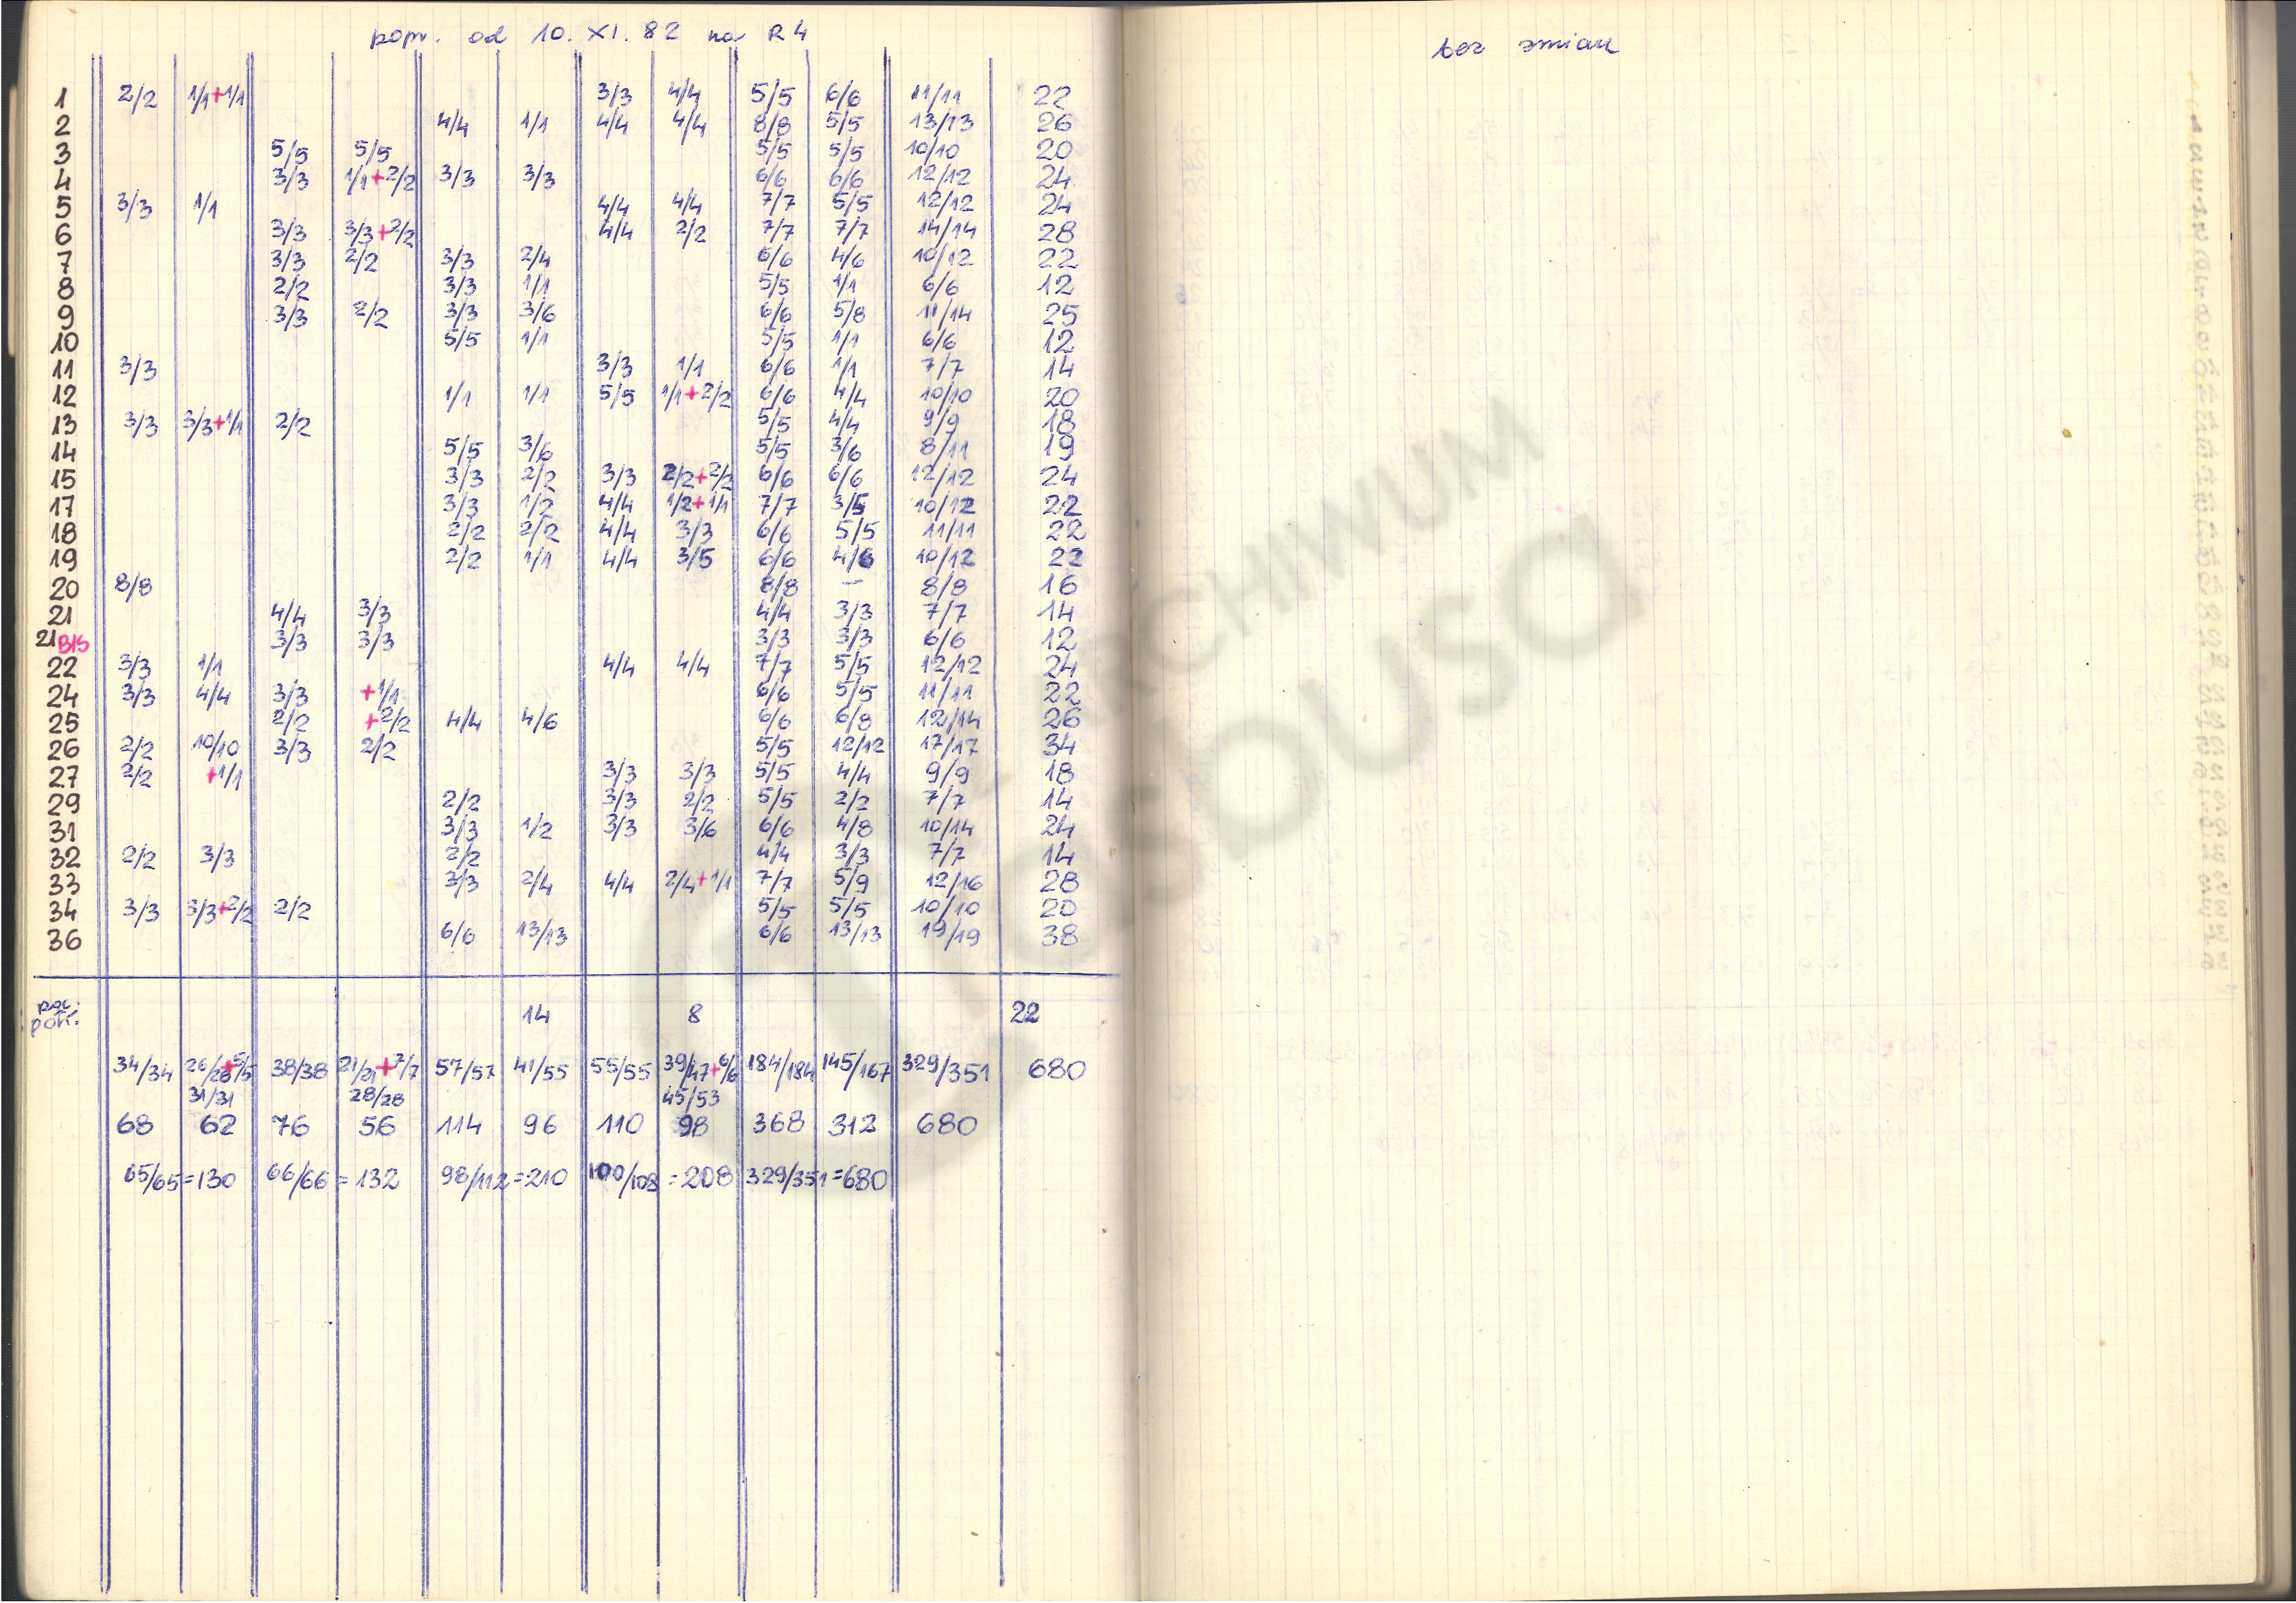 popr. od 10. XI. 82 na R4
1 2/2 1/1+1/1 3/3 4/4 5/5 6/6 11/11 22
2 4/4 1/1 4/4 4/4 8/8 5/5 13/13 26
3 5/5 5/5 5/5 5/5 10/10 20
4 3/3 1/1+2/2 3/3 3/3 6/6 6/6 12/12 24
5 3/3 1/1 4/4 4/4 7/7 5/5 12/12 24
6 3/3 3/3+2/2 4/4 2/2 7/7 7/7 14/14 28
7 3/3 2/2 3/3 2/4 6/6 4/6 10/12 22
8 2/2 3/3 1/1 5/5 1/1 6/6 12
9 3/3 2/2 3/3 3/6 6/6 5/8 11/14 25
10 5/5 1/1 5/5 1/1 6/6 12
11 3/3 3/3 1/1 6/6 1/1 7/7 14
12 1/1 1/1 5/5 1/1+2/2 6/6 4/4 10/10 20
13 3/3 3/3+1/1 2/2 5/5 4/4 9/9 18
14 5/5 3/6 5/5 3/6 8/11 19
15 3/3 2/2 3/3 2/2+2/2 6/6 6/6 12/12 24
17 3/3 1/2 4/4 1/2+1/1 7/7 3/5 10/12 22
18 2/2 2/2 4/4 3/3 6/6 5/5 11/11 22
19 2/2 1/1 4/4 3/5 6/6 4/6 10/12 22
20 8/8 8/8 — 8/8 16
21 4/4 3/3 4/4 3/3 7/7 14
21BIS 3/3 3/3 3/3 3/3 6/6 12
22 3/3 1/1 4/4 4/4 7/7 5/5 12/12 24
24 3/3 4/4 3/3 +1/1 6/6 5/5 11/11 22
25 2/2 +2/2 4/4 4/6 6/6 6/8 12/14 26
26 2/2 10/10 3/3 2/2 5/5 12/12 17/17 34
27 2/2 +1/1 3/3 3/3 5/5 4/4 9/9 18
29 2/2 3/3 2/2 5/5 2/2 7/7 14
31 3/3 1/2 3/3 3/6 6/6 4/8 10/14 24
32 2/2 3/3 2/2 4/4 3/3 7/7 14
33 3/3 2/4 4/4 2/4+1/1 7/7 5/9 12/16 28
34 3/3 3/3+2/2 2/2 5/5 5/5 10/10 20
36 6/6 13/13 6/6 13/13 19/19 38
14 8 22
34/34 26/26+5/5 38/38 21/21+7/7 57/57 41/55 55/55 39/47+6/6 184/184 145/167 329/351 680
31/31 28/28 45/53
68 62 76 56 114 96 110 98 368 312 680
65/65=130 66/66=132 98/112=210 100/108=208 329/351=680
bez zmian